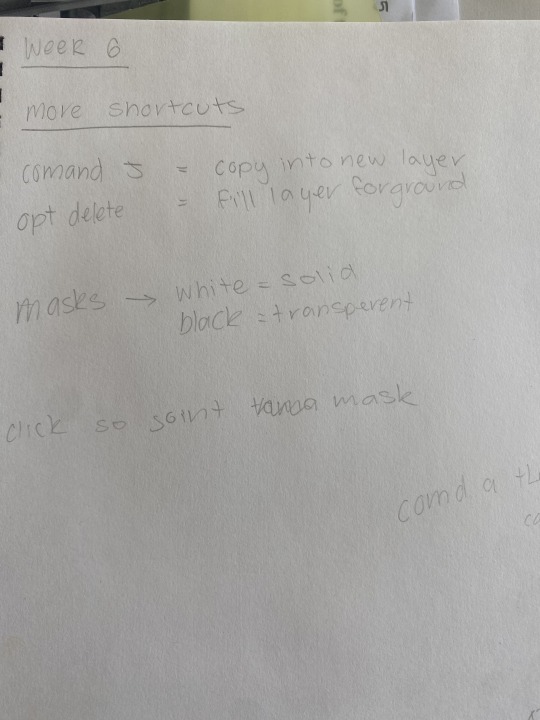 Week 6
more shortcuts
comand J = copy into new layer
opt delete = Fill layer forground
masks → white = solid
black = transperent
click so soint mask
comd a